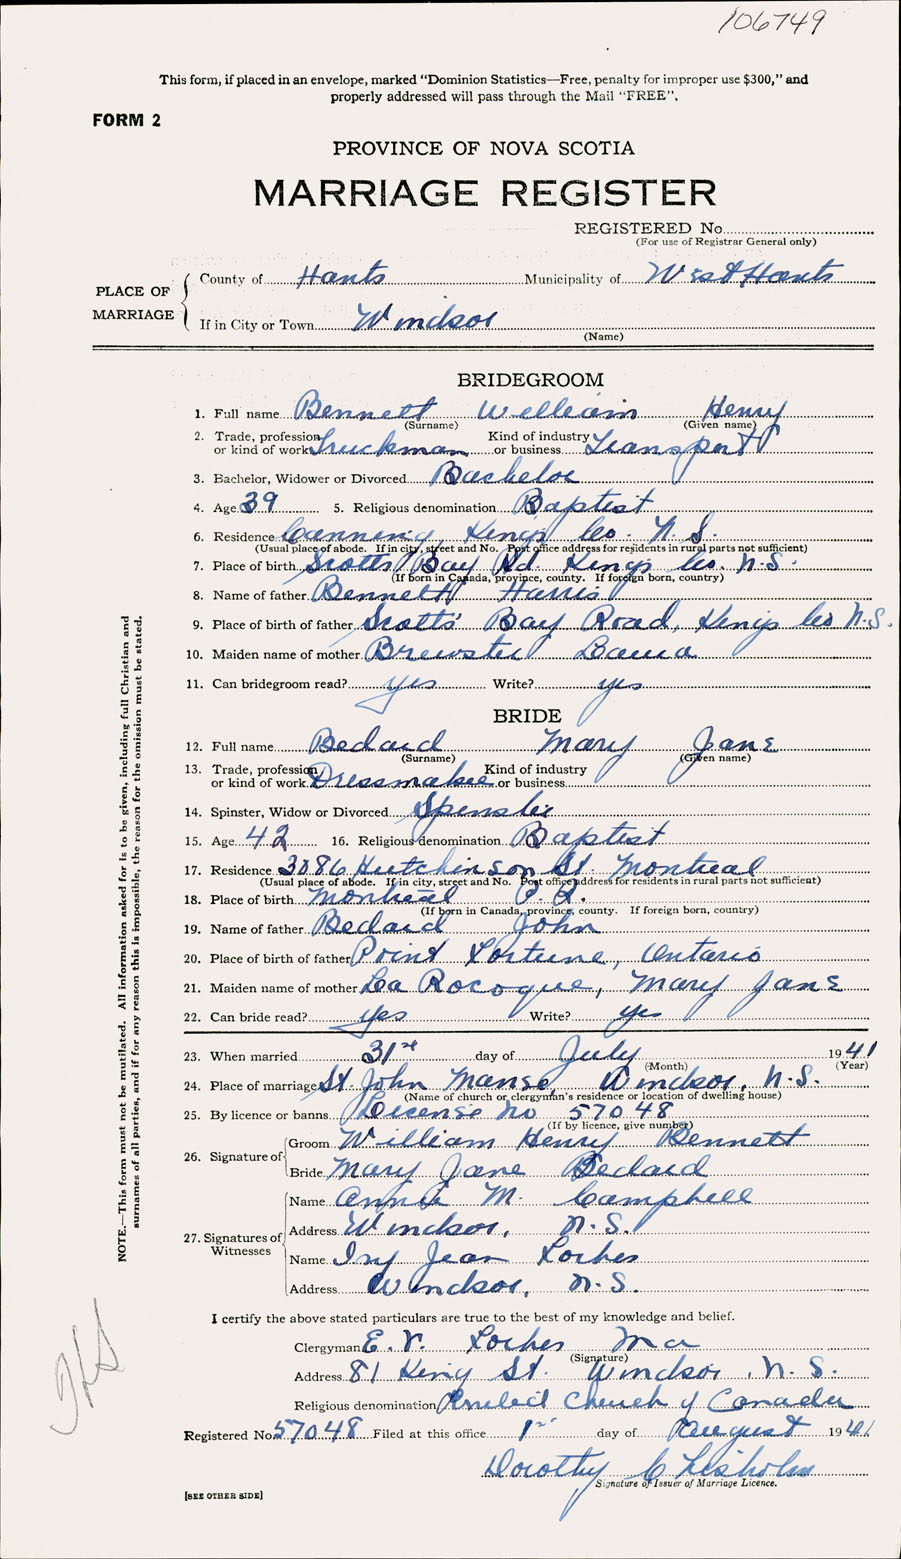 106749
This form, if placed in an envelope, marked “Dominion Statistics—Free, penalty for improper use $300,” and
properly addressed will pass through the Mail “FREE”.
FORM 2
PROVINCE OF NOVA SCOTIA
MARRIAGE REGISTER
REGISTERED No.
(For use of Registrar General only)
PLACE OF MARRIAGE
County of Hants Municipality of West Hants
If in City or Town Windsor
(Name)
BRIDEGROOM
1. Full name Bennett William Henry
(Surname) (Given name)
2. Trade, profession or kind of work Truckman Kind of industry or business Transport
3. Bachelor, Widower or Divorced Bachelor
4. Age 39 5. Religious denomination Baptist
6. Residence Canning, Kings Co. N.S.
(Usual place of abode. If in city, street and No. Post office address for residents in rural parts not sufficient)
7. Place of birth Scotts Bay Rd. Kings Co. N.S.
(If born in Canada, province, county. If foreign born, country)
8. Name of father Bennett Harris
9. Place of birth of father Scotts' Bay Road, Kings Co N.S.
10. Maiden name of mother Brewster
11. Can bridegroom read? yes Write? yes
BRIDE
12. Full name Bedard Mary Jane
(Surname) (Given name)
13. Trade, profession or kind of work Dressmaker Kind of industry or business
14. Spinster, Widow or Divorced Spinster
15. Age 42 16. Religious denomination Baptist
17. Residence 3086 Hutchinson St. Montreal
(Usual place of abode. If in city, street and No. Post office address for residents in rural parts not sufficient)
18. Place of birth Montreal P.Q.
(If born in Canada, province, county. If foreign born, country)
19. Name of father Bedard John
20. Place of birth of father Point Fortune, Ontario
21. Maiden name of mother La Rocoque, Mary Jane
22. Can bride read? yes Write? yes
23. When married 31st day of July 1941
(Month) (Year)
24. Place of marriage St. John Manse, Windsor, N.S.
(Name of church or clergyman's residence or location of dwelling house)
25. By licence or banns License No 57048
(If by licence, give number)
26. Signature of
Groom William Henry Bennett
Bride Mary Jane Bedard
27. Signatures of Witnesses
Name Annie M. Campbell
Address Windsor, N.S.
Name Jean Forbes
Address Windsor, N.S.
I certify the above stated particulars are true to the best of my knowledge and belief.
Clergyman E. V. Forbes M a
(Signature)
Address 81 King St. Windsor, N.S.
Religious denomination United Church of Canada
Registered No. 57048 Filed at this office 1st day of August 1941
Dorothy Chisholm
Signature of Issuer of Marriage Licence.
[SEE OTHER SIDE]
NOTE.—This form must not be mutilated. All information asked for is to be given, including full Christian and
surnames of all parties, and if for any reason this is impossible, the reason for the omission must be stated.